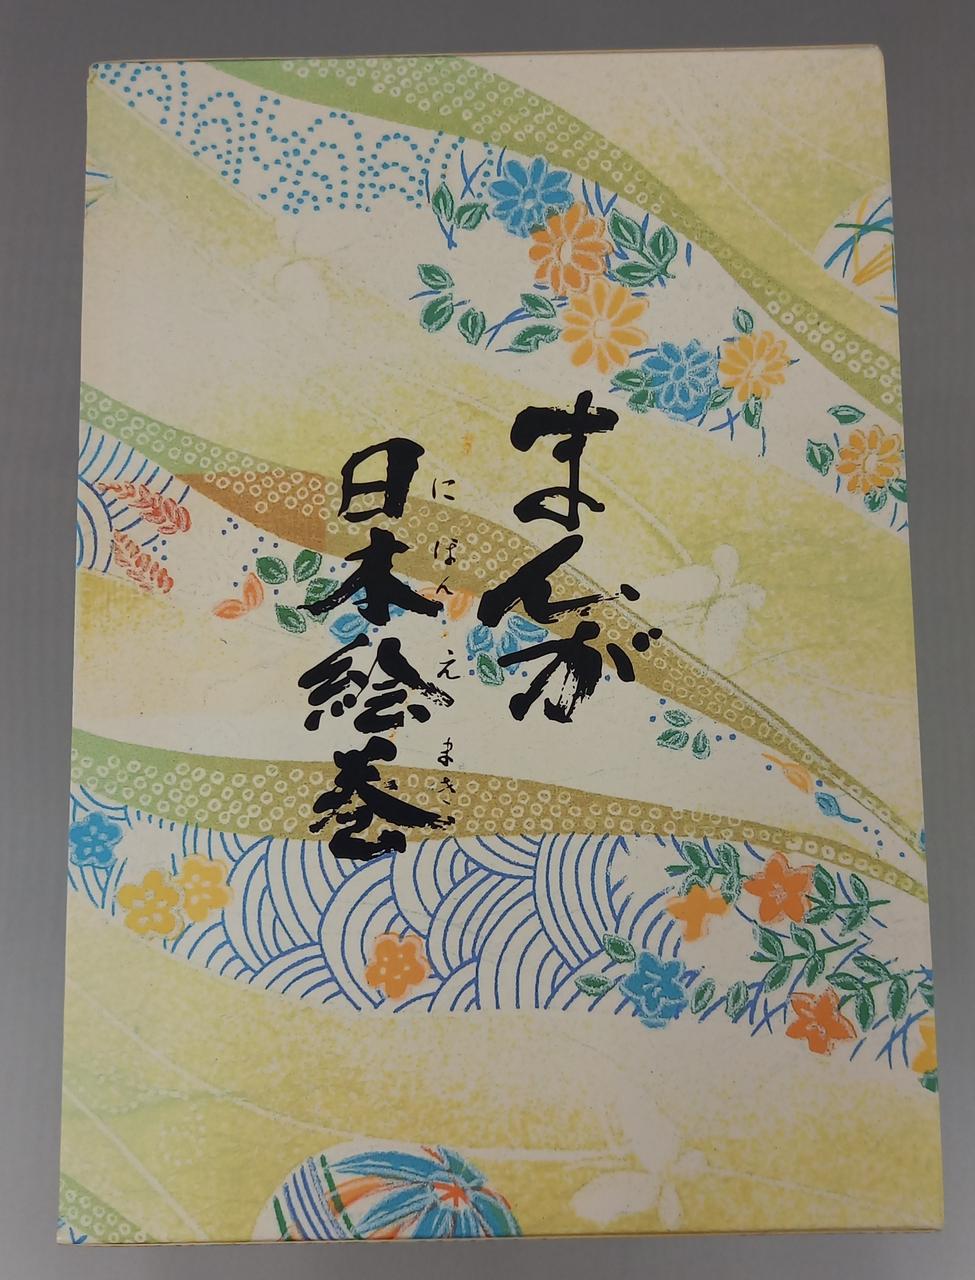 まんが
日本絵巻
にほんえまき